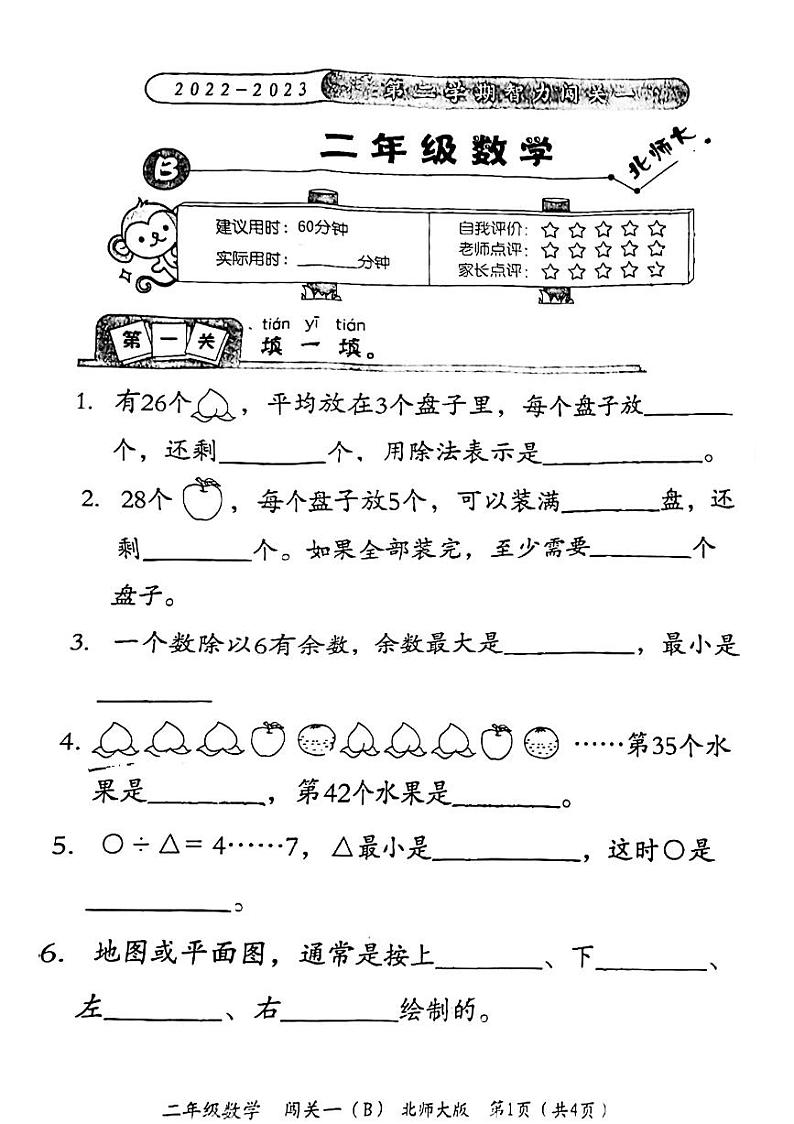 2022-2023
第二学期智力闯关一
二年级数学
北师大
B
建议用时：60分钟
实际用时：______分钟
自我评价：☆☆☆☆☆
老师点评：☆☆☆☆☆
家长点评：☆☆☆☆☆
tián yī tián
第一关 填一填。
1. 有26个，平均放在3个盘子里，每个盘子放______
个，还剩______个，用除法表示是______。
2. 28个，每个盘子放5个，可以装满______盘，还
剩______个。如果全部装完，至少需要______个
盘子。
3. 一个数除以6有余数，余数最大是______，最小是
______
4. ……第35个水
果是______，第42个水果是______。
5. ○÷△=4……7，△最小是______，这时○是
______。
6. 地图或平面图，通常是按上______、下______、
左______、右______绘制的。
二年级数学 闯关一（B） 北师大版 第1页（共4页）